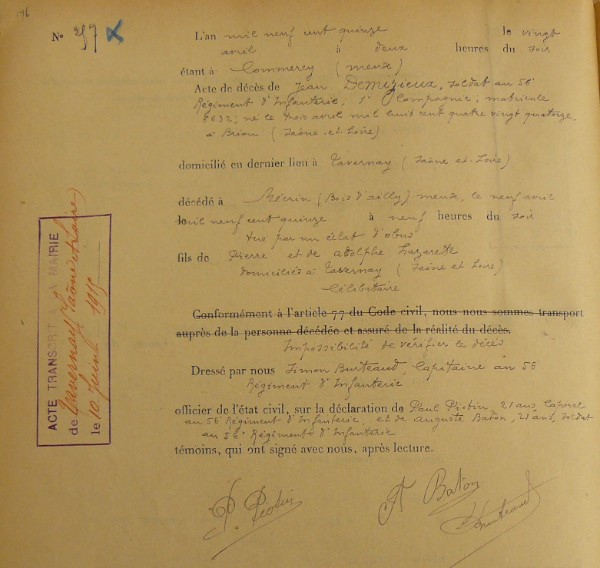 N° 257
L'an mil neuf cent quinze le vingt
avril à deux heures du soir
étant à Commercy (meuse)
Acte de décès de Jean DEMIZIEUX, soldat au 56e
Régiment d'Infanterie, 1e Compagnie, matricule
né le trois avril mil huit cent quatre vingt quatorze
à Brion (Saône-et-Loire)
domicilié en dernier lieu à Tavernay (Saône et-Loire)
décédé à Mécrin (Bois d'ailly) meuse, le neuf avril
mil neuf cent quinze à neuf heures du soir
tué par un éclat d'obus
fils de Pierre et de Lazarette
domiciliés à Tavernay (Saône et Loire)
Célibataire
Conformément à l'article 77 du Code civil, nous nous sommes transport
auprès de la personne décédée et assuré de la réalité du décès.
Impossibilité de vérifier le décès
Dressé par nous Simon Burteaud, Capitaine au 56
Régiment d'Infanterie
officier de l'état civil, sur la déclaration de Paul Piotin, 21 ans, Caporal
au 56 Régiment d'Infanterie et de Auguste Baton, 21 ans, soldat
au 56e Régiment d'Infanterie
témoins, qui ont signé avec nous, après lecture.
P. Piotin
A Baton
Burteaud
ACTE TRANSCRIT A LA MAIRIE
de Tavernay (Saône et Loire)
le 10 1915